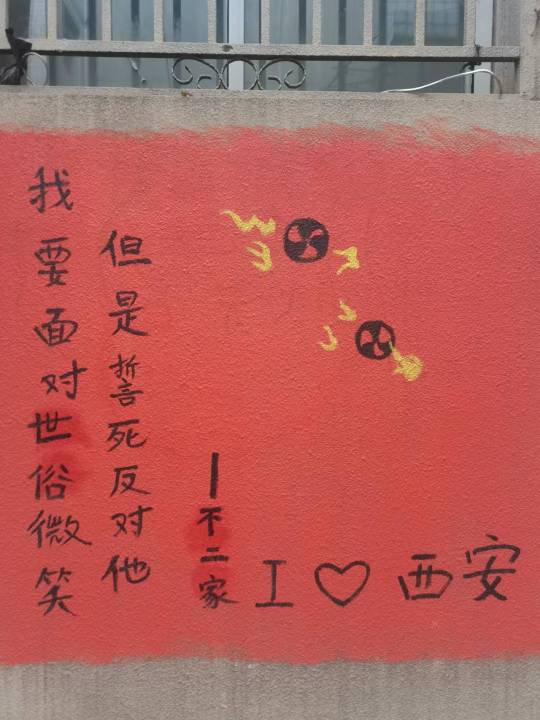 我要面对世俗微笑
但是誓死反对他
—不二家
I♡西安